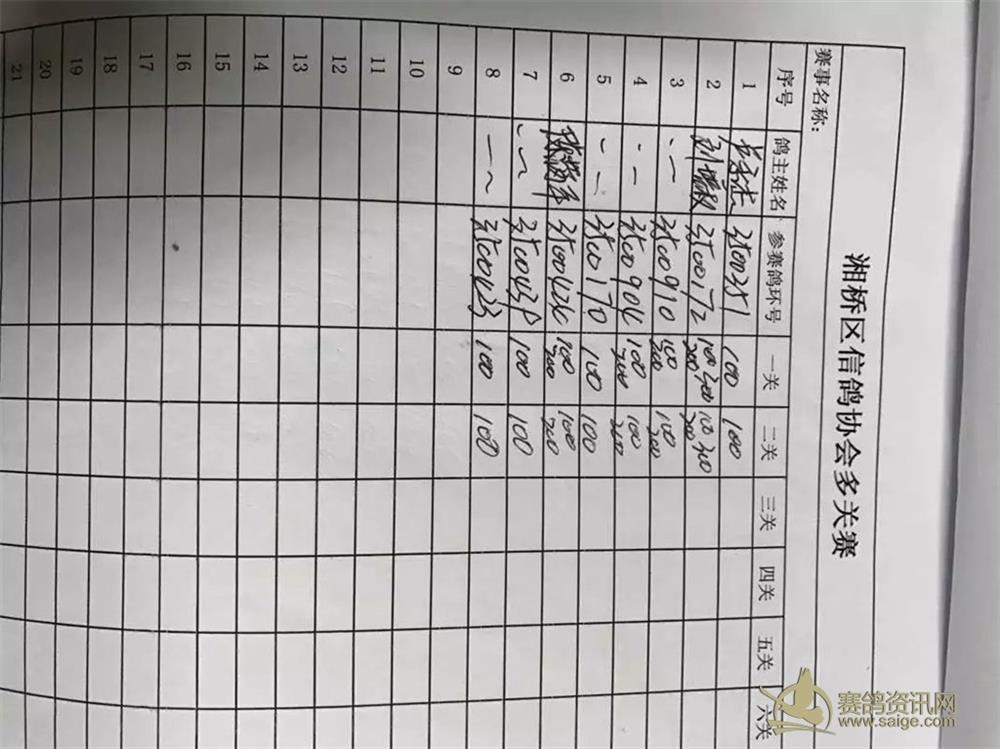 湘桥区信鸽协会多关赛
赛事名称：
序号 鸽主姓名 参赛鸽环号 一关 二关 三关 四关 五关 六关
1 3500251 100 100
2 3500172 100 300 200 100 300 200
3 3500910 100 200 100 200
4 3500904 100 200 100 200
5 3500170 100 100
6 100 200 100 200
7 100 100
8 100 100
9
10
11
12
13
14
15
16
17
18
19
20
21
赛鸽资讯网
www.saige.com